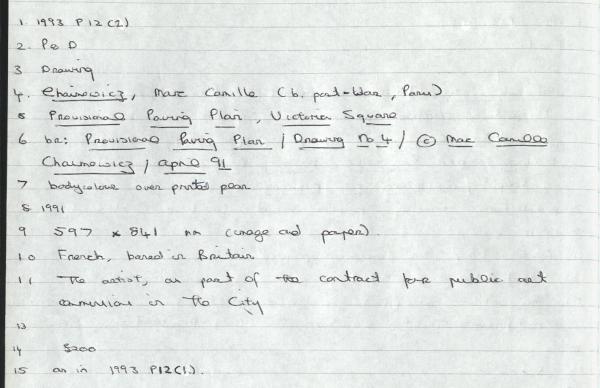 1. 1993 P12(2)
2. P&D
3 Drawing
4. Chaimowicz, Marc Camille (b. post-War, Paris)
5 Provisional Paving Plan, Victoria Square
6 br: Provisional Paving Plan / Drawing No 4 / © Marc Camille
Chaimowicz / april 91
7 bodycolour over printed plan
8 1991
9 597 x 841 mm (image and paper).
10 French, based in Britain
11 The artist, as part of the contract for public art
commissions in the City
13
14 £200
15 as in 1993 P12(1).